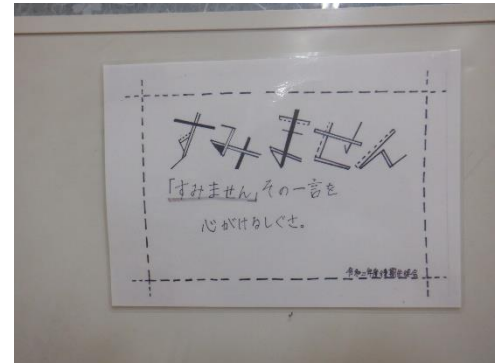 すみません
「すみません」その一言を
心がけるしぐさ。